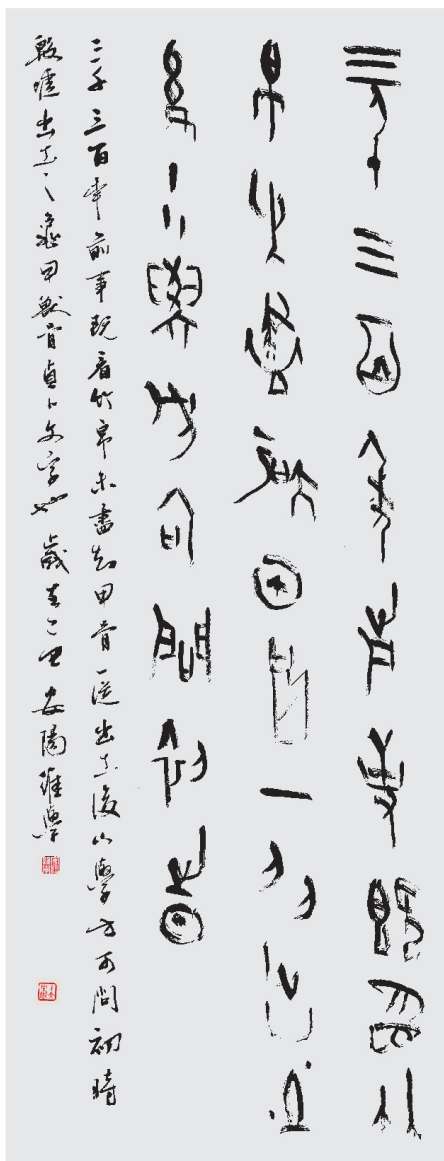 三千三百年前事現看竹
帛未盡知甲骨一從出土
後小學方可問初時
三千三百年前事現看竹帛未盡知甲骨一從出土後小學方可問初時
殷墟出土之龜甲獸骨貞卜文字也 歲在乙巳 安陽學